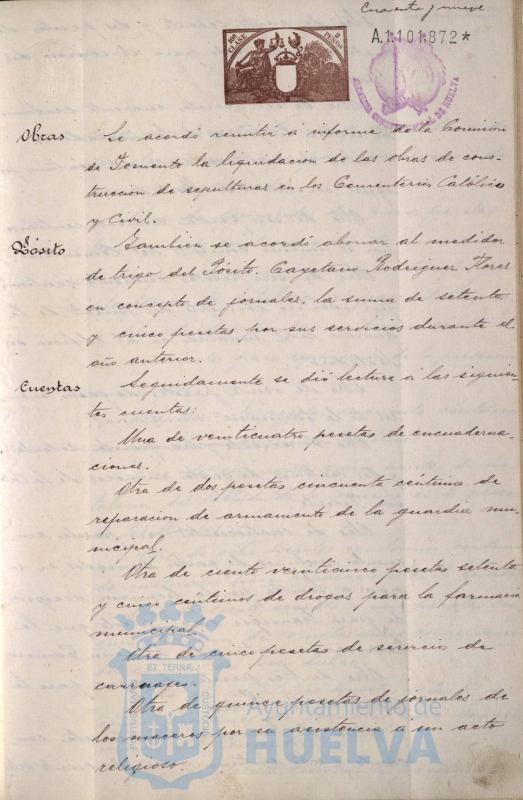 Cuarenta y nueve
10ª CLASE
2 PESETAS
A.1.101.872*
ALCALDIA CONSTITUCIONAL DE HUELVA
Obras
Se acordó remitir á informe de la Comisión
de Fomento la liquidacion de las obras de cons-
truccion de sepulturas en los Cementerios Católico
y Civil.
Pósito
Tambien se acordó abonar al medidor
de trigo del Pósito, Cayetano Rodriguez Flores
en concepto de jornales, la suma de setenta
y cinco pesetas por sus servicios durante el
año anterior.
Cuentas
Seguidamente se dió lectura á las siguien-
tes cuentas:
Una de veinticuatro pesetas de encuaderna-
ciones.
Otra de dos pesetas cincuenta céntimos de
reparacion de armamento de la guardia mu-
nicipal.
Otra de ciento veinticinco pesetas setenta
y cinco céntimos de drogas para la farmacia
municipal.
Otra de cinco pesetas de servicio de
carruajes.
Otra de quince pesetas de jornales de
los maceros por su asistencia a un acto
religioso.
PORTUS MARIS ET TERRÆ CUSTODIA
Ayuntamiento de
HUELVA